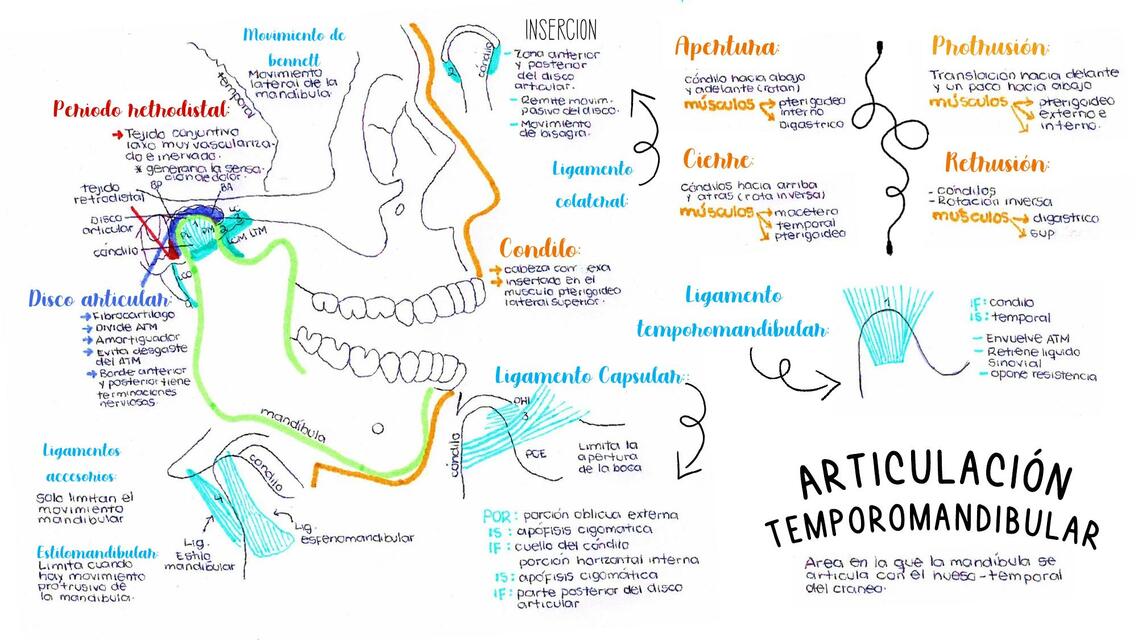 Movimiento de
bennett
Movimiento
lateral de la
mandibula.
temporal
Periodo retrodistal:
Tejido conjuntivo
laxo muy vasculariza-
do e inervado.
* generana la sensa-
ción de dolor.
tejido
retrodistal
BP
BA
Disco
articular
cóndilo
Disco articular:
Fibrocartilago
Divide ATM
Amortiguador
Evita desgaste
del ATM
Borde anterior
y posterior tiene
terminaciones
nerviosas.
mandíbula
Ligamentos
accesorios:
Solo limitan el
movimiento
mandibular
Estilomandibular:
Limita cuando
hay movimiento
protrusivo de
la mandibula.
cóndilo
4
Lig.
Estilo
mandibular
Lig.
esfenomandibular
INSERCION
cóndilo
Zona anterior
y posterior
del disco
articular.
Remite movim.
pasivo del disco.
Movimiento
de bisagra.
Ligamento
colateral:
Condilo:
cabeza con exa
insertado en el
musculo pterigoideo
lateral superior.
Ligamento Capsular:
PHI
3
POE
cóndilo
Limita la
apertura
de la boca
POR: porción oblicua externa
IS: apófisis cigomática
IF: cuello del cóndilo
porción horizontal interna
IS: apófisis cigomática
IF: parte posterior del disco
articular
Apertura:
cóndilo hacia abajo
y adelante (rotan)
músculos
pterigoideo
interno
Digastrico
Cierre:
Cóndilos hacia arriba
y atras (rota inversa)
músculos
macetero
temporal
pterigoideo
Protrusión:
Translación hacia delante
y un paco hacia abajo
músculos
pterigoideo
externo e
interno.
Retrusión:
- cóndilos
- Rotación inversa
músculos
digastrico
sup
Ligamento
temporomandibular:
1
IF: condilo
IS: temporal
Envuelve ATM
Retiene liquido
Sinovial
opone resistencia
ARTICULACIÓN
TEMPOROMANDIBULAR
Area en la que la mandíbula se
articula con el hueso-temporal
del craneo.